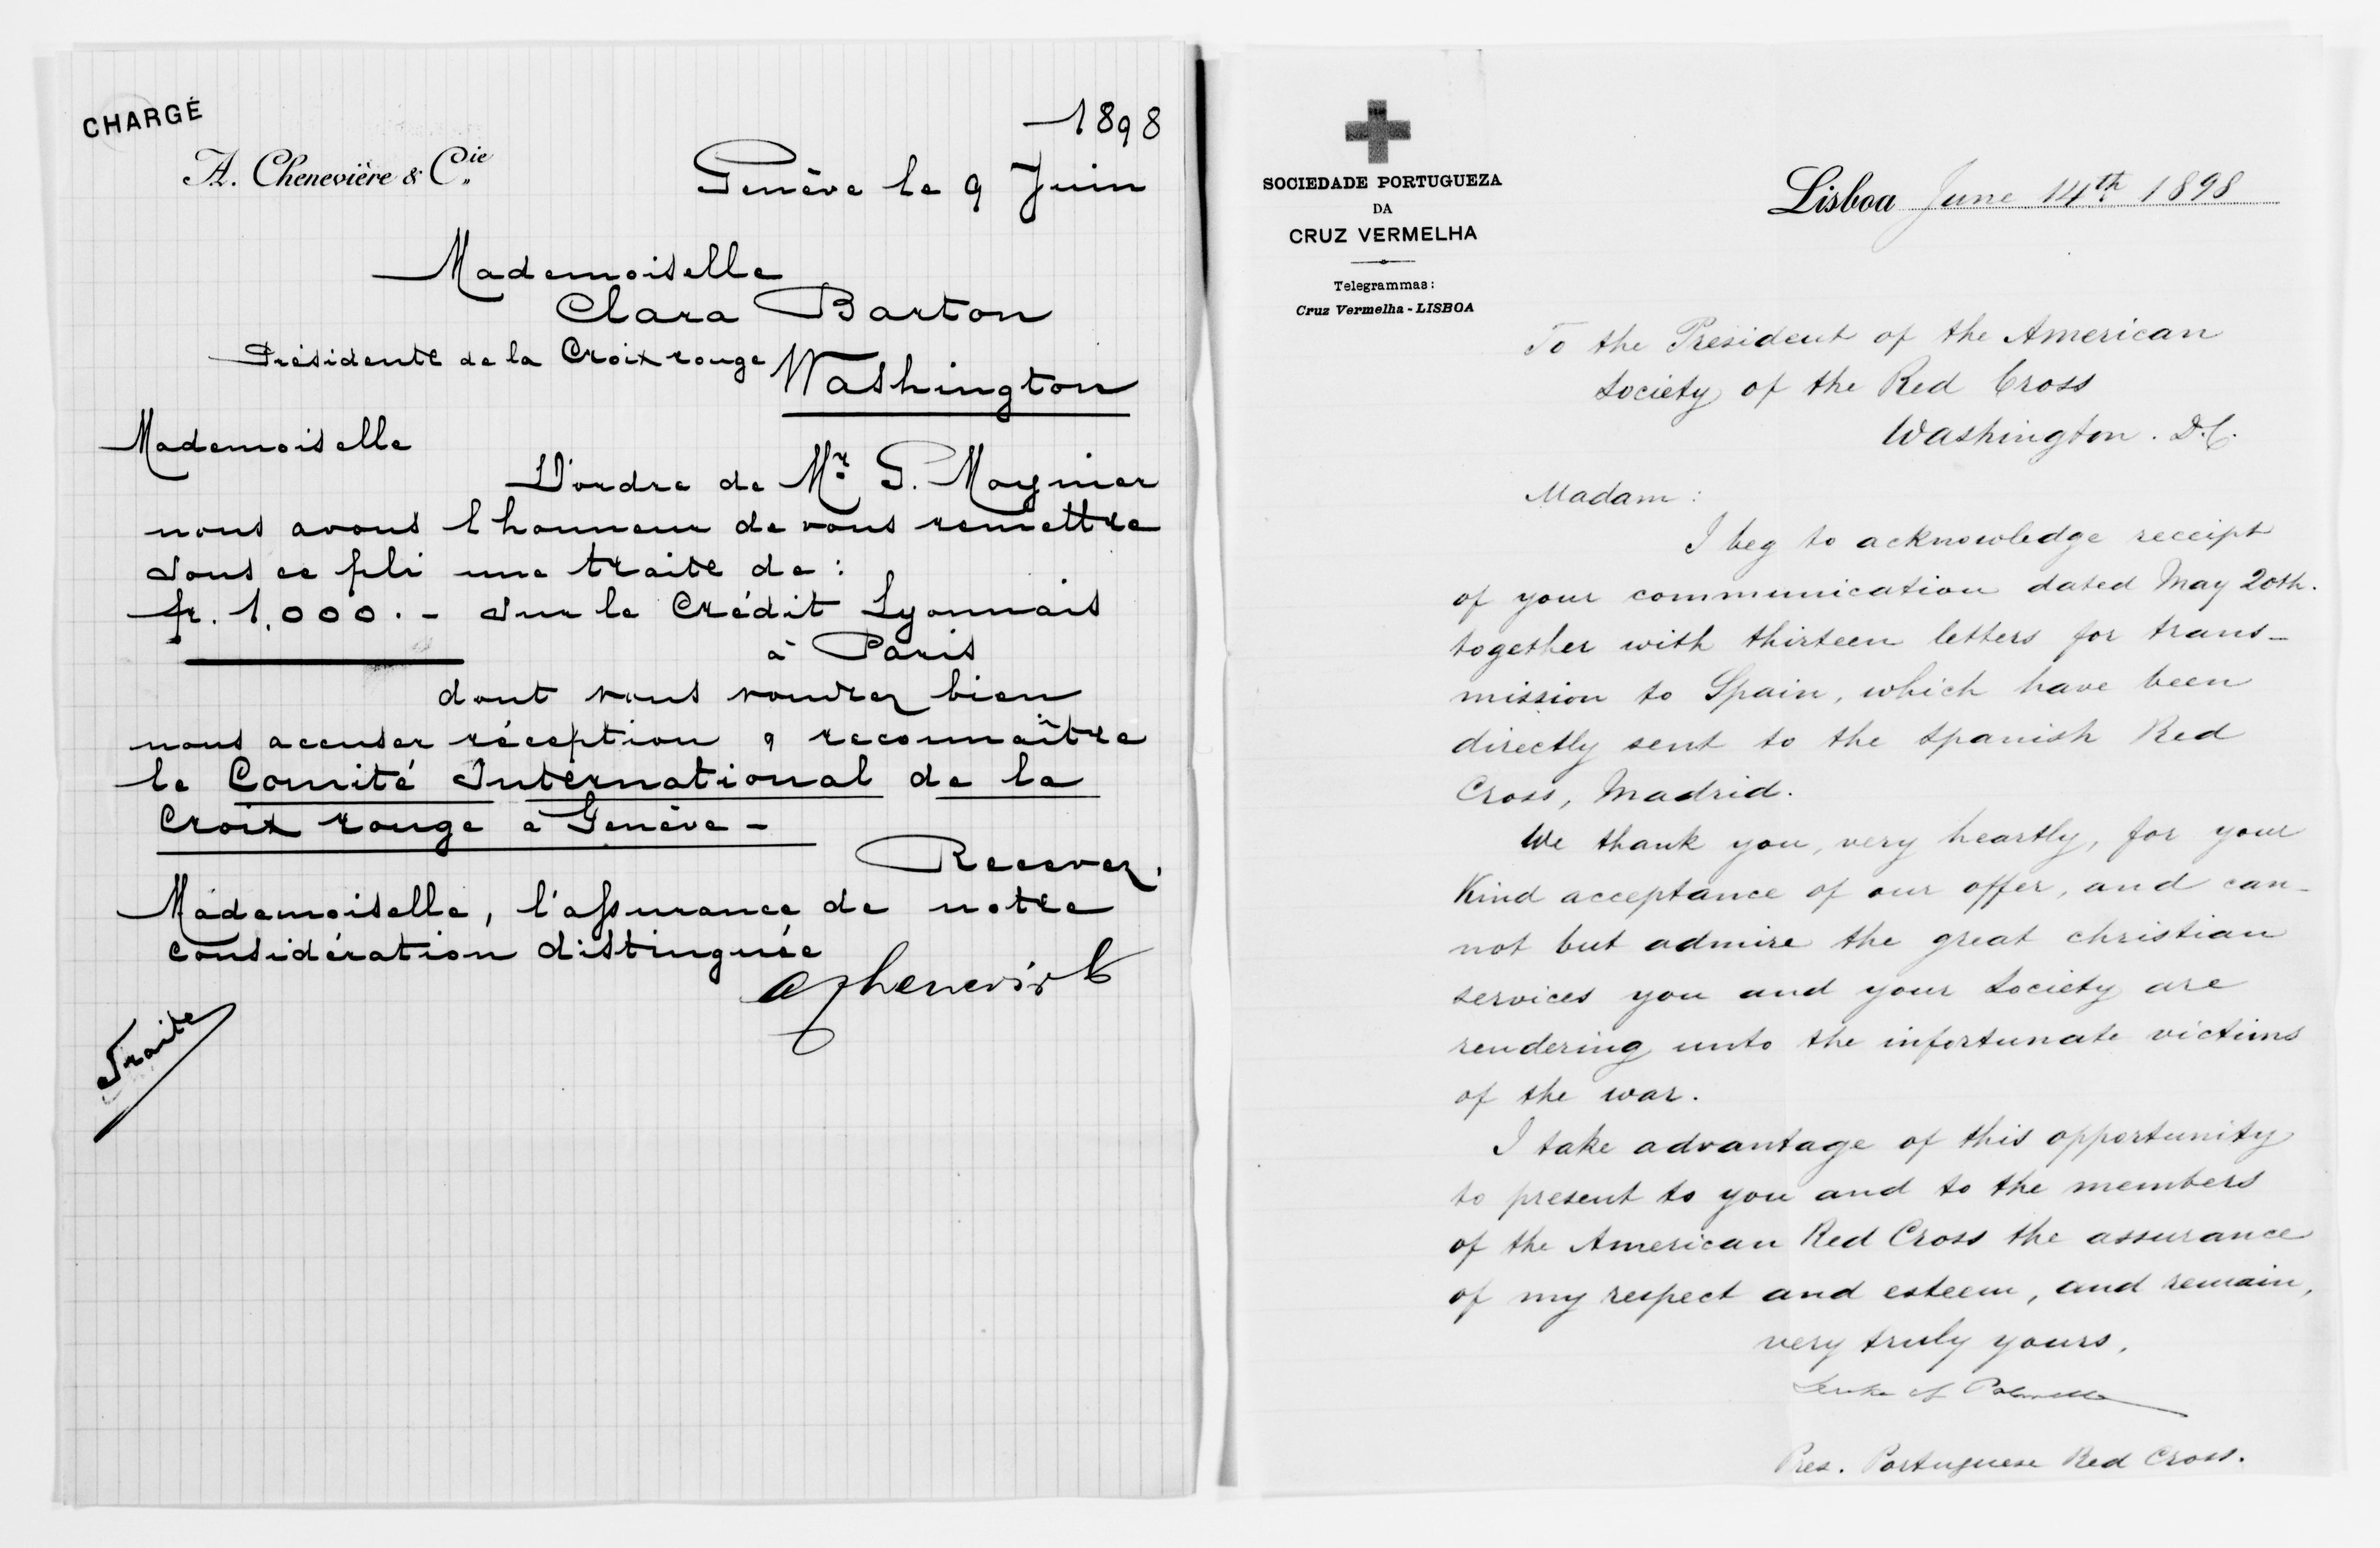 CHARGÉ
A. Chenevière & Cie
1898
Genève le 9 Juin
Mademoiselle
Clara Barton
Présidente de la Croix rouge
Washington
Mademoiselle
D'ordre de Mr. G. Moynier
nous avons l'honneur de vous remettre
sous ce pli une traite de :
fr. 1.000.- sur le Crédit Lyonnais
à Paris
dont vous voudrez bien
nous accuser réception & reconnaître
le Comité International de la
Croix rouge à Genève -
Recevez,
Mademoiselle, l'assurance de notre
considération distinguée
Traite
SOCIEDADE PORTUGUEZA
DA
CRUZ VERMELHA
Telegrammas:
Cruz Vermelha - LISBOA
Lisboa June 14th 1898
To the President of the American
Society of the Red Cross
Washington. D.C.
Madam:
I beg to acknowledge receipt
of your communication dated May 20th.
together with thirteen letters for trans-
mission to Spain, which have been
directly sent to the Spanish Red
Cross, Madrid.
We thank you, very heartly, for your
Kind acceptance of our offer, and can-
not but admire the great christian
services you and your Society are
rendering unto the infortunate victims
of the war.
I take advantage of this opportunity
to present to you and to the members
of the American Red Cross the assurance
of my respect and esteem, and remain,
very truly yours,
Duke of Palmella
Pres. Portuguese Red Cross.